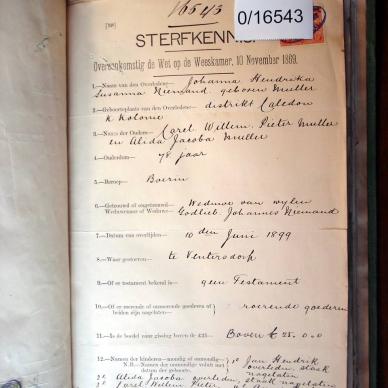 16543
0/16543
[N8]
STERFKENNIS
Overeenkomstig de Wet op de Weeskamer, 10 November 1869.
1.—Namen van den Overledene— Johanna Hendrika
Susanna Niemand geboren Muller
2.—Geboorteplaats van den Overledene— distrikt Caledon
K Kolonie
3.—Namen der Ouders— Karel Willem Pieter Muller
en Alida Jacoba Muller
4.—Ouderdom— 78 jaar
5.—Beroep— Boerin
6.—Getrouwd of ongetrouwd— Weduwe van wylen
Weduwnaar of Weduwe— Godlieb Johannes Niemand
7.—Datum van overlijden— 10 den Juni 1899
8.—Waar gestorven— te Ventersdorp
9.—Of er testament bekend is— geen Testament
10.—Of er roerende of onroerende goederen of
beiden zijn nagelaten— roerende goederen
11.—Is de boedel naar gissing boven de £25— Boven £25.0.0
12.—Namen der kinderen—mondig of onmondig—
Namen der onmondigen voluit met
datum der geboorte.
1e Jan Hendrik
overleden, staak
nagelaten
2e Alida Jacoba overleden, staak
nagelaten
3e Karel Willem Pieter